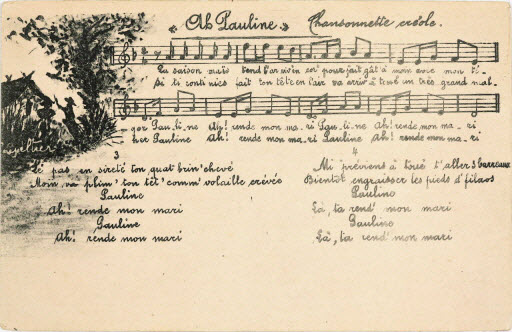 « Ah Pauline »
Chansonnette créole.
La saison maïs tend l'ar
à mon ti-
Si ti conti fait ton tête en l'air va arriv' à tend un très grand mal-
Pau-li-ne Ah! rende mon ma-ri Pau-li-ne Ah! rende mon ma-ri
heur Pauline Ah! rende mon ma-ri Pauline Ah! rende mon ma-ri
3
pas en sireté ton quat brin' chevé
va plim' ton têt' comm' volaille crévée
Pauline
Ah! rende mon mari
Pauline
Ah! rende mon mari
4
Mi préviens à t'aller 3 barreaux
Bientôt engraisser les pieds d'filaos
Pauline
Là, ta rend' mon mari
Pauline
Là, ta rend' mon mari